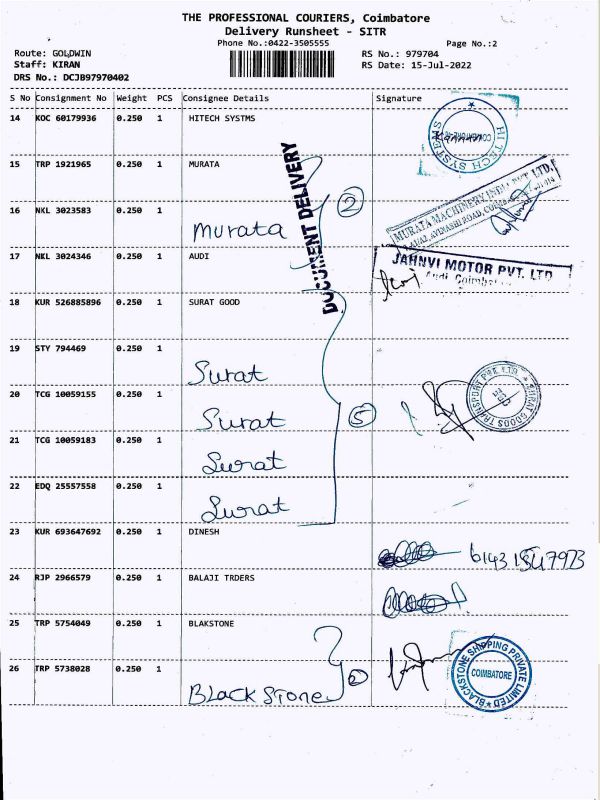 THE PROFESSIONAL COURIERS, Coimbatore
Delivery Runsheet - SITR
Phone No.:0422-3505555
Page No.:2
Route: GOLDWIN
RS No.: 979704
Staff: KIRAN
RS Date: 15-Jul-2022
DRS No.: DCJB97970402
S No Consignment No Weight PCS Consignee Details Signature
14 KOC 60179936 0.250 1 HITECH SYSTMS
HI TECH SYSTEMS
COIMBATORE
15 TRP 1921965 0.250 1 MURATA
DOCUMENT DELIVERY
2
MURATA MACHINERY INDIA PVT. LTD.
16 NKL 3023583 0.250 1
Murata
17 NKL 3024346 0.250 1 AUDI
JAHNVI MOTOR PVT. LTD
Audi Coimbatore
18 KUR 526885896 0.250 1 SURAT GOOD
19 STY 794469 0.250 1
Surat
20 TCG 10059155 0.250 1
Surat
5
SURAT GOODS TRANSPORT PVT. LTD.
21 TCG 10059183 0.250 1
Surat
22 EDQ 25557558 0.250 1
Surat
23 KUR 693647692 0.250 1 DINESH
24 RJP 2966579 0.250 1 BALAJI TRDERS
25 TRP 5754049 0.250 1 BLAKSTONE
26 TRP 5738028 0.250 1
Black Stone
2
BLACKSTONE SHIPPING PRIVATE LIMITED
COIMBATORE